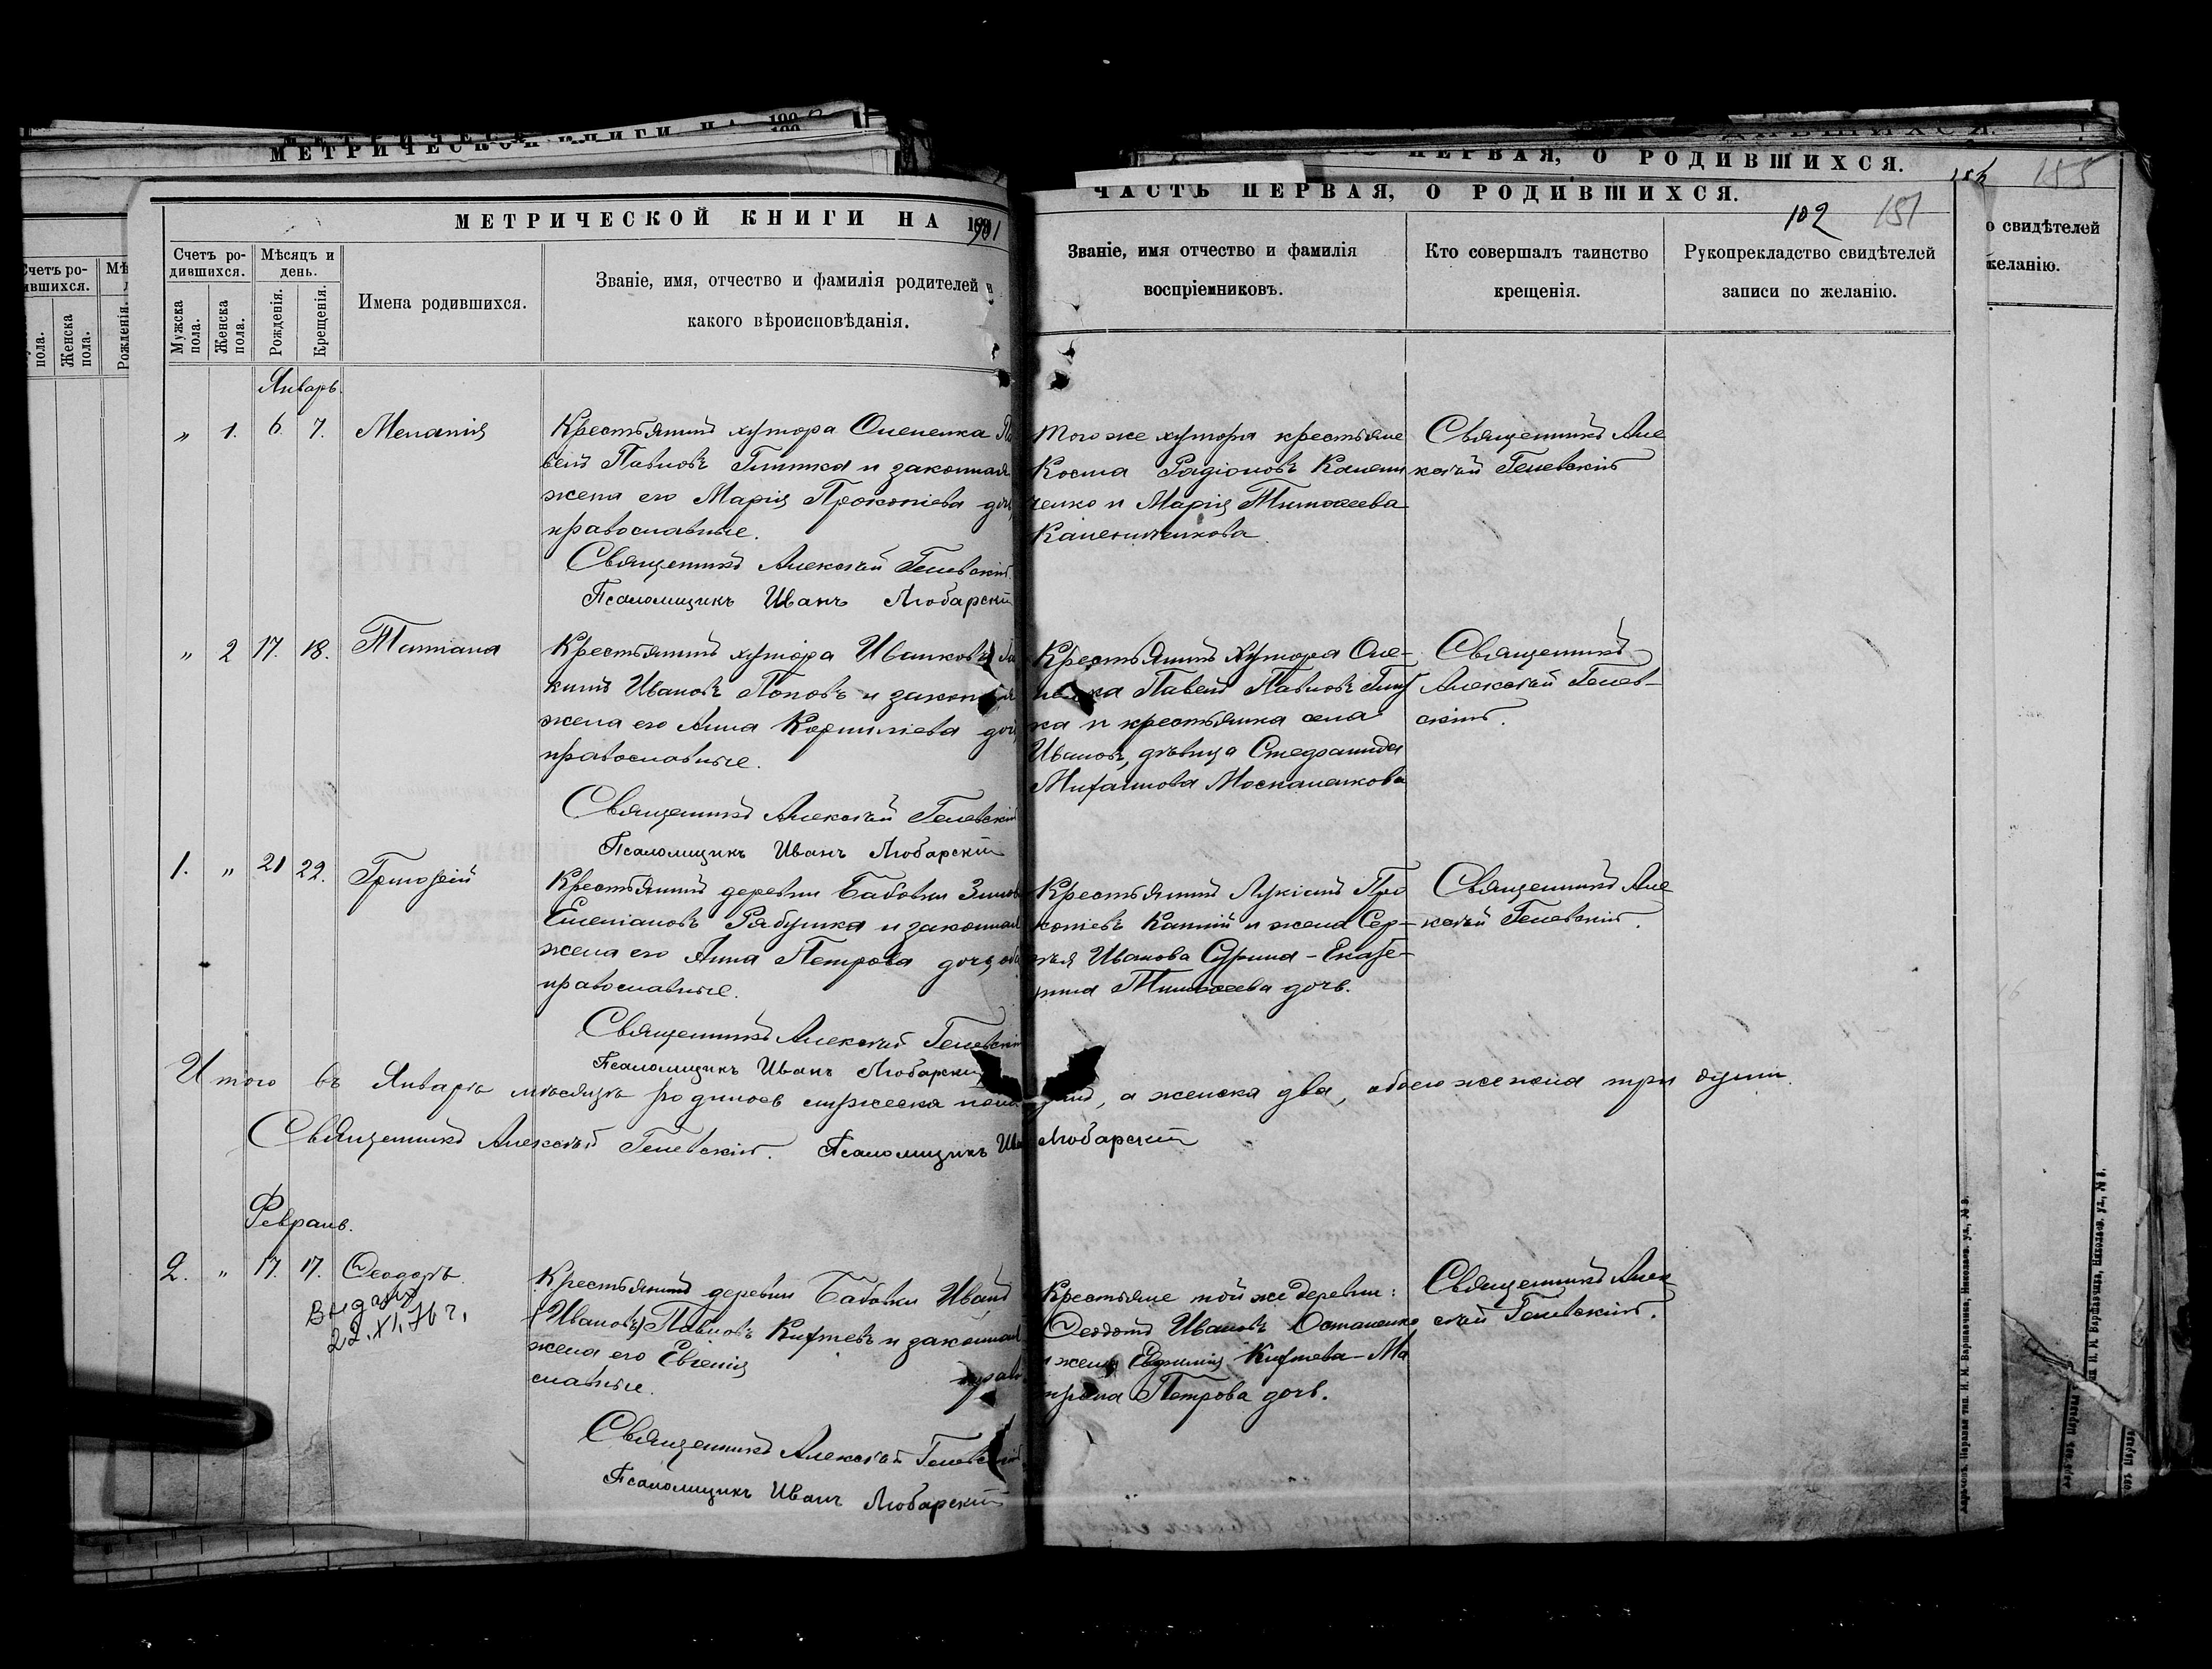 МЕТРИЧЕСКОЙ КНИГИ НА 1901
ЧАСТЬ ПЕРВАЯ, О РОДИВШИХСЯ.
102 151
155
Счетъ родившихся.
Мужска пола.
Женска пола.
Мѣсяцъ и день.
Рожденія.
Крещенія.
Имена родившихся.
Званіе, имя, отчество и фамилія родителей и
какого вѣроисповѣданія.
Званіе, имя отчество и фамилія
воспріемниковъ.
Кто совершалъ таинство
крещенія.
Рукоприкладство свидѣтелей
записи по желанію.
Январь.
„ 1. 6. 7. Меланія
Крестьянинъ хутора Олененка Па
велъ Павловъ Глитка и законная
жена его Марія Прокопіева дочь
православные.
Священникъ Алексѣй Гелевскій.
Псаломщикъ Иванъ Любарскій
Того же хутора крестьяне
Косма Радіоновъ Калени
ченко и Марія Тимоѳеева
Калениченкова.
Священникъ Але
ксѣй Гелевскій
„ 2 17. 18. Татіана
Крестьянинъ хутора Иванковъ
кимъ Ивановъ Поповъ и законная
жена его Анна Корниліева дочь
православные.
Священникъ Алексѣй Гелевскій
Псаломщикъ Иванъ Любарскій
Крестьянинъ хутора Оле-
ненка Павелъ Павловъ Глит
ка и крестьянка села
дѣвица
Михаилова Москаленкова
Священникъ
Алексѣй Гелев-
скій.
1. „ 21 22. Григорій
Крестьянинъ деревни Бабовки
Емеліановъ Рябушка и законная
жена его Анна Петрова дочь, оба
православные.
Священникъ Алексѣй Гелевскій
Псаломщикъ Иванъ Любарскій
Крестьянинъ Лукіанъ Про
копіевъ и жена Сер-
гѣя Иванова Сурина - Екате-
рина Тимоѳеева дочь.
Священникъ Але
ксѣй Гелевскій.
Итого въ Январѣ мѣсяцѣ родилось мужеска пола одинъ, а женска два, обоего же пола три души.
Священникъ Алексѣй Гелевскій. Псаломщикъ Иванъ Любарскій
Февраль.
2. „ 17. 17. Ѳеодоръ.
22.XI.76 г.
Крестьянинъ деревни Бабовки Иванъ
(Ивановъ) Павловъ Кихтевъ и законная
жена его Евгенія право
славные.
Священникъ Алексѣй Гелевскій
Псаломщикъ Иванъ Любарскій
Крестьяне той же деревни:
Ѳеодотъ Ивановъ Остапенко
и жена Кихтева - Ма
трона Петрова дочь.
Священникъ Алек
сѣй Гелевскій.